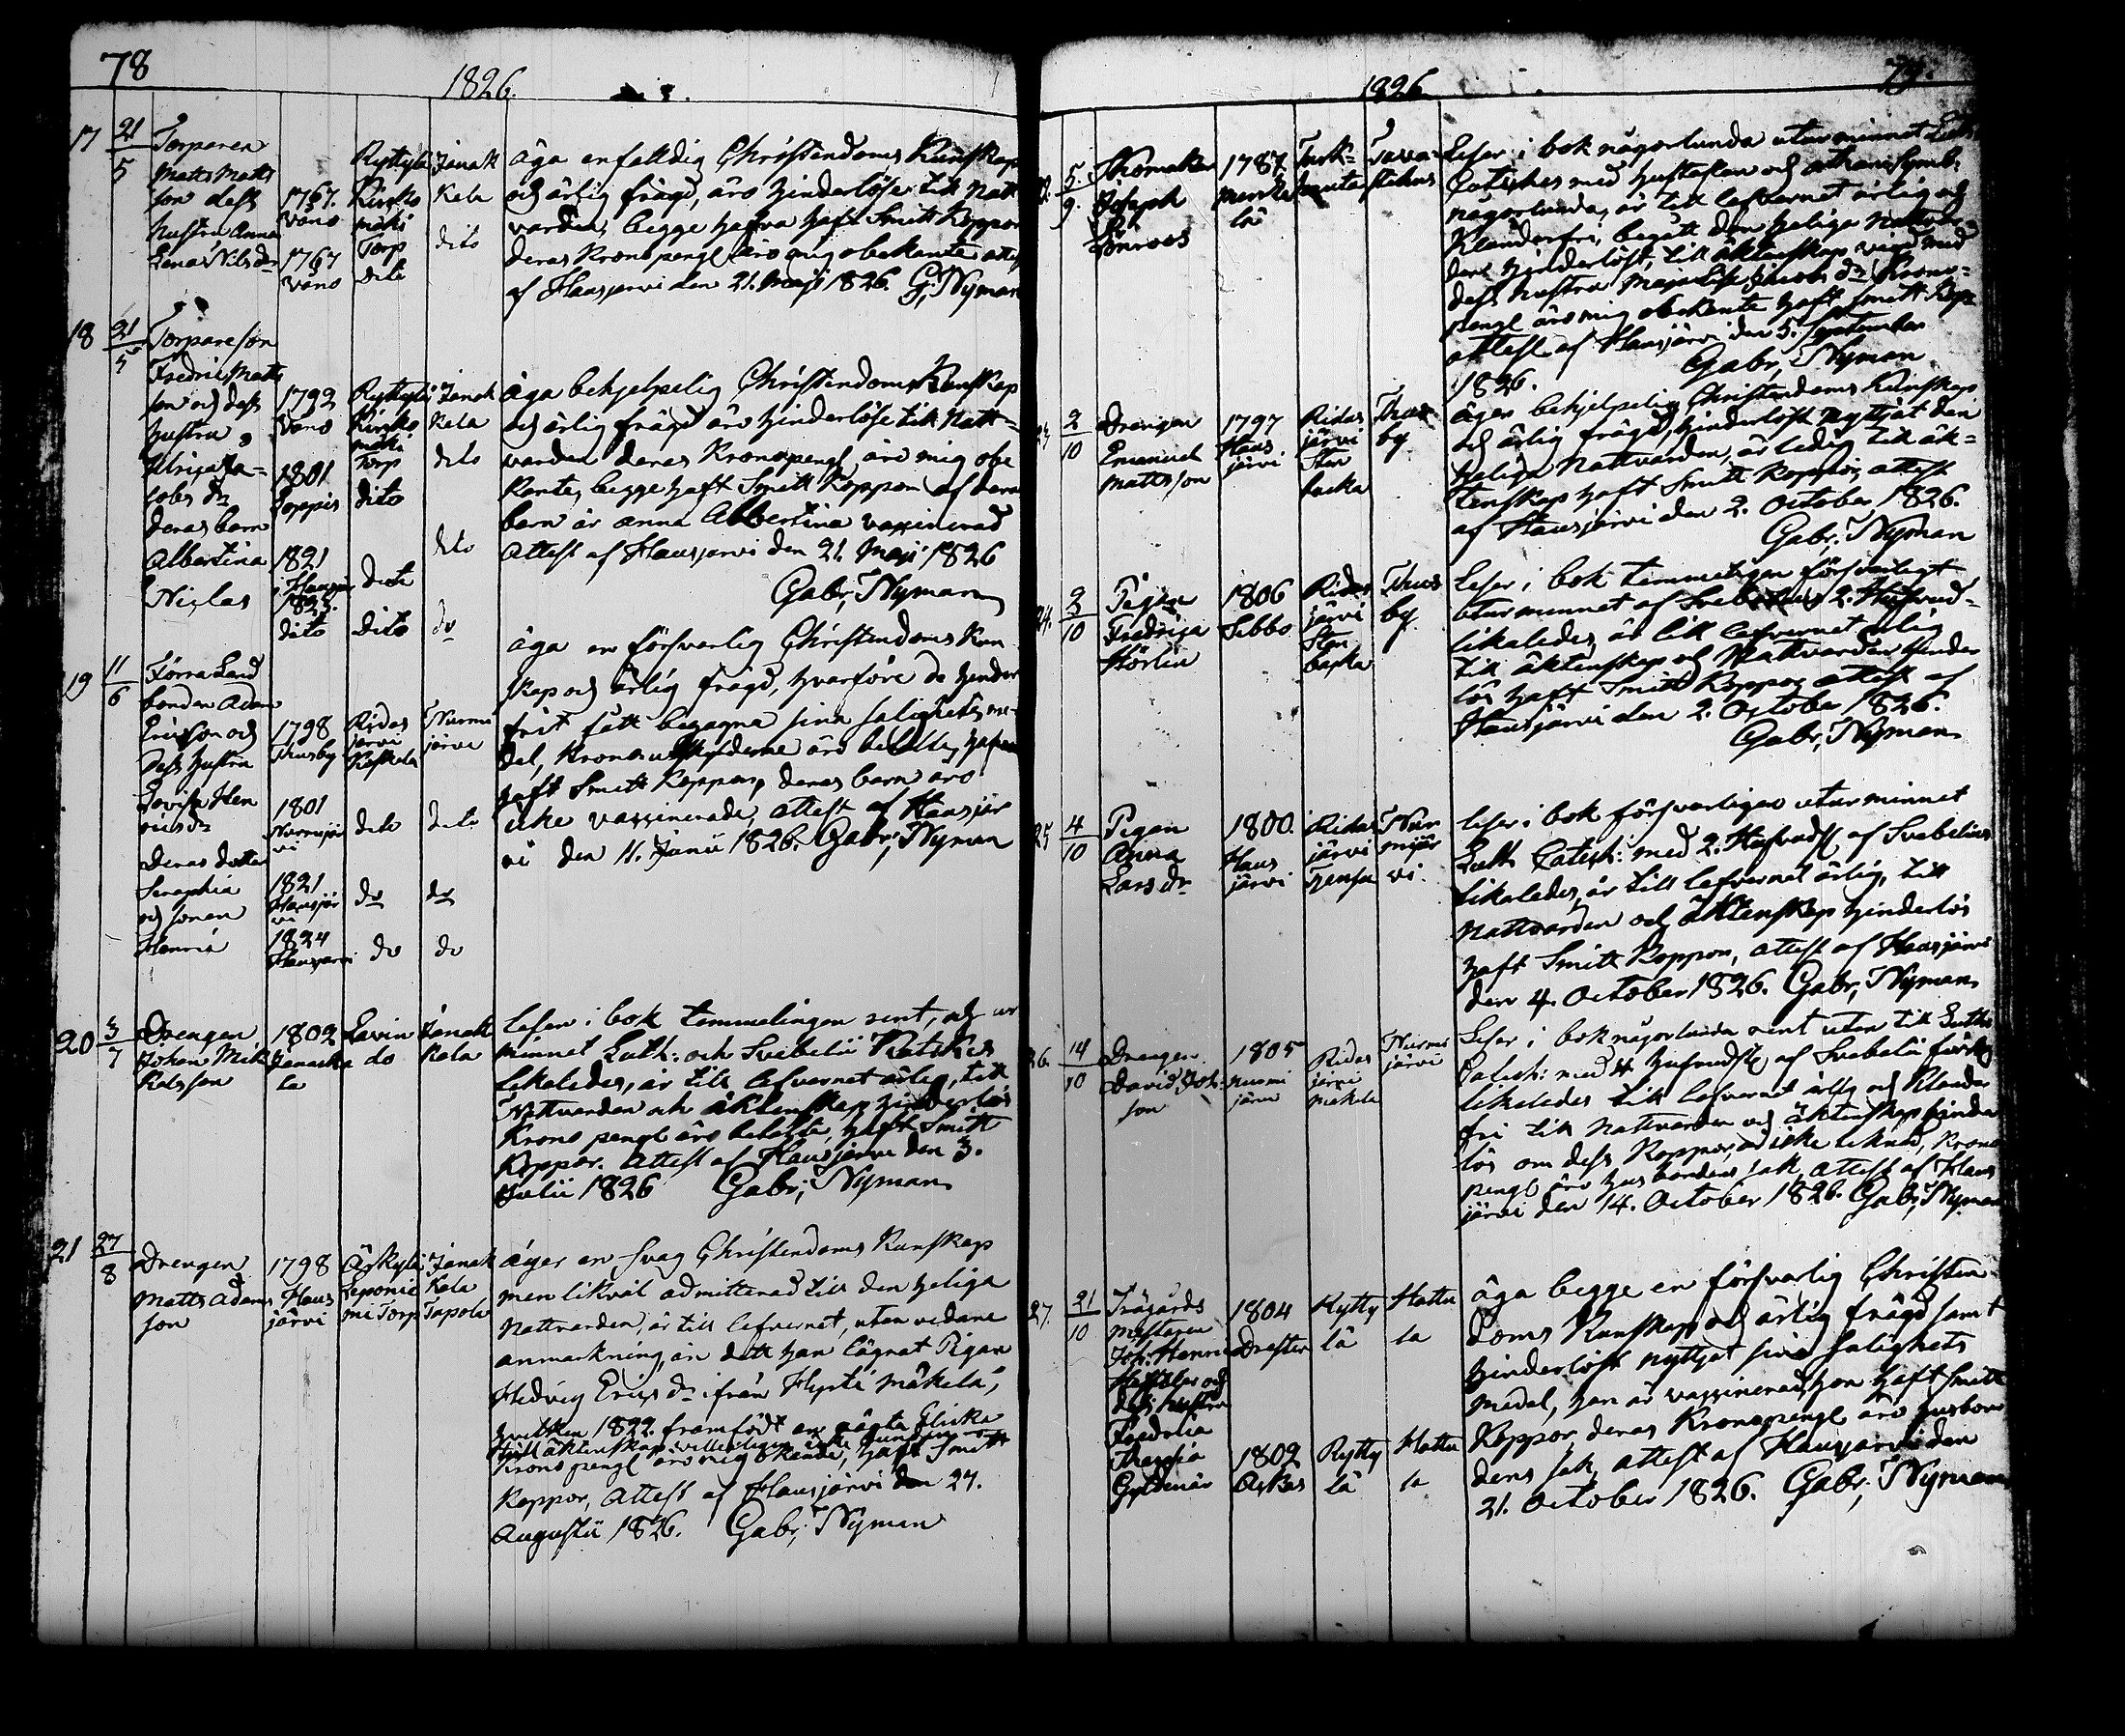 78
1826.
17 21/5 Torparen
Matts Matts
son dess
hustru Anna
Lena Nilsdr
1767.
Våno
1767
Våno
Ryttylä
Torp
dito
Janak
kala
dito
äga enfalldig Christendoms Kunskap
och ärlig frägd, äro hinderlöse till Natt
varden, begge hafva haft Smitt Koppor
deras Kronopengl äro mig obekante attest
af Hausjervi den 21. Maji 1826. G. Nyman
18 21/5 Torpareson
Fredric Matts
son och dess
hustru
Ulrica Ja-
cobs dr
deras barn
Albertina
Niclas
1792
Våno
1801
Loppis
1821
i Hausjär
1825.
dito
Ryttylä
Torp
dito
dito
dito
Janak
kala
dito
dito
do
äga behjelpelig Christendoms Kunskap
och ärlig frägd äro hinderlöse till Natt-
varden deras Kronopengl äro mig obe
kante, begge haft Smitt Koppor af deras
barn är anna Albertina vaxinerad
Attest af Hausjervi den 21. Maji 1826
Gabr, Nyman
19 11/6 Förra Land
bonden Adam
Ericsson och
dess hustru
Lovisa Hen
ricsdr
deras dotter
Seraphia
och sonen
Henric
1798
Thusby
1801
Nurmijär
vi
1821
Hausjär
vi
1824
Hausjervi
Ridas
jervi
Keskela
dito
do
do
Nurmi
järvi
dito
do
do
äga en försvarlig Christendoms Kun
skap och ärlig frägd, hvarföre de hinder
frit fått begagna sina salighets me-
del, Kronoutskylderne äro betalte, hafva
haft Smitt Koppor, deras barn äro
icke vaxinerade, attest af Hausjär
vi den 11. Junii 1826. Gabr, Nyman
20 3/7 Drengen
Johan Mic
kelsson
1802
Janacka
la
Lavin
do
Janak
kala
Leser i bok temmeligen rent, och ur
minnet Luth: och Svebelii Katekes
likaledes, är till lefvernet ärlig, till
Nattvarden och äktenskap hinderlös
Krono pengl äro betalte, haft Smitt
Koppor. Attest af Hausjervi den 3.
Julii 1826 Gabr; Nyman
21 27/8 Drengen
Matts Adams
son
1798
Haus
järvi
Äskylä
mi Torp
Janak
kala
Tapola
äger en svag Christendoms Kunskap
men likväl admitterad till den heliga
Nattvarden, är till lefvernet, utan vidare
anmärkning, än dett han lägrat Pigan
Hedvig Erics dr ifrån Hyvi Mäkelä,
hvilken 1822. framfödt en oägta flicka
till äktenskap
Krono pengl äro mig okände, haft Smitt
Koppor, Attest af Hausjärvi den 27.
Augustii 1826. Gabr; Nyman
1826
79.
22. 5/9. Skomakar
Joseph
Lönroos
1787
Turk-
hauta
Tava
stehus
Leser i bok någorlunda utur minnet Luth
Catiches med hustaflan och athan: Symb:
någorlunda, är till lefvernet ärlig och
Klanderfri, begått den heliga Nattvar
den hinderlöst, till äktenskap värd med
dess hustru Maja Lisa Jacobs dr Krono-
pengl äro mig obekante haft Smitt Kop
attest af Hausjärvi den 5. September
1826. Gabr, Nyman
23 2/10 Drengen
Emanuel
Mattsson
1797
Haus
järvi
Ridas
järvi
Sten
backa
Thus
by
äger behjelpelig Christendoms Kunskap
och ärlig frägd, hinderlöst nyttjat den
heliga Nattvarden, är ledig till äk-
tenskap haft Smitt Koppor, attest
af Hausjärvi den 2. October 1826.
Gabr; Nyman
24. 2/10 Pigan
Fredrica
Hörlin
1806
Sibbo
Ridas
järvi
Sten
backa
Thus
by
Leser i bok temmeligen försvarligt
utur minnet af Svebelius 2. Hufvud-
likaledes, är till lefvernet ärlig
till äktenskap och Nattvarden hinder
lös haft Smitt Koppor attest af
Hausjärvi den 2. October 1826.
Gabr; Nyman
25 4/10 Pigan
Anna
Lars dr
1800.
Haus
järvi
Ridas
järvi
Nur
mijär
vi.
Leser i bok försvarligen utur minnet
Luth Catech: med 2. Hufvudst af Svebelius
likaledes, är till lefvernet ärlig, till
Nattvarden och äktenskap hinderlös
haft Smitt Koppor, attest af Hausjärvi
den 4. October 1826. Gabr, Nyman
26. 14/10 Drengen
David Joh:
son
1805
Nurmi
järvi
Ridas
järvi
Mäkelä
Nurmi
järvi
Leser i bok någorlunda rent utan till Luths
Catech: med 4 hufvudst af Svebelii
likaledes till lefvernet ärlig och Klander
fri till Nattvarden och äktenskap hinder
lös om dess Koppor, är icke teknad, Krono
pengl äro hus bondens sak, attest af Haus
järvi den 14. October 1826. Gabr, Nyman
27. 21/10 Trägårds
mestaren
Joh: Henric
och
dess hustru
Fredrica
Gyldenär
1804
1802
Rytty
lä
Rytty
lä
Hattu
la
Hattu
la
äga begge en försvarlig Christen
doms Kunskap och ärlig frägd samt
hinderlöst nyttjat sina salighets
medel, han är vaxinerad, hon haft Smitt
Koppor, deras Kronopengl äro husbon
dens sak, attest af Hausjärvi den
21. October 1826. Gabr, Nyman